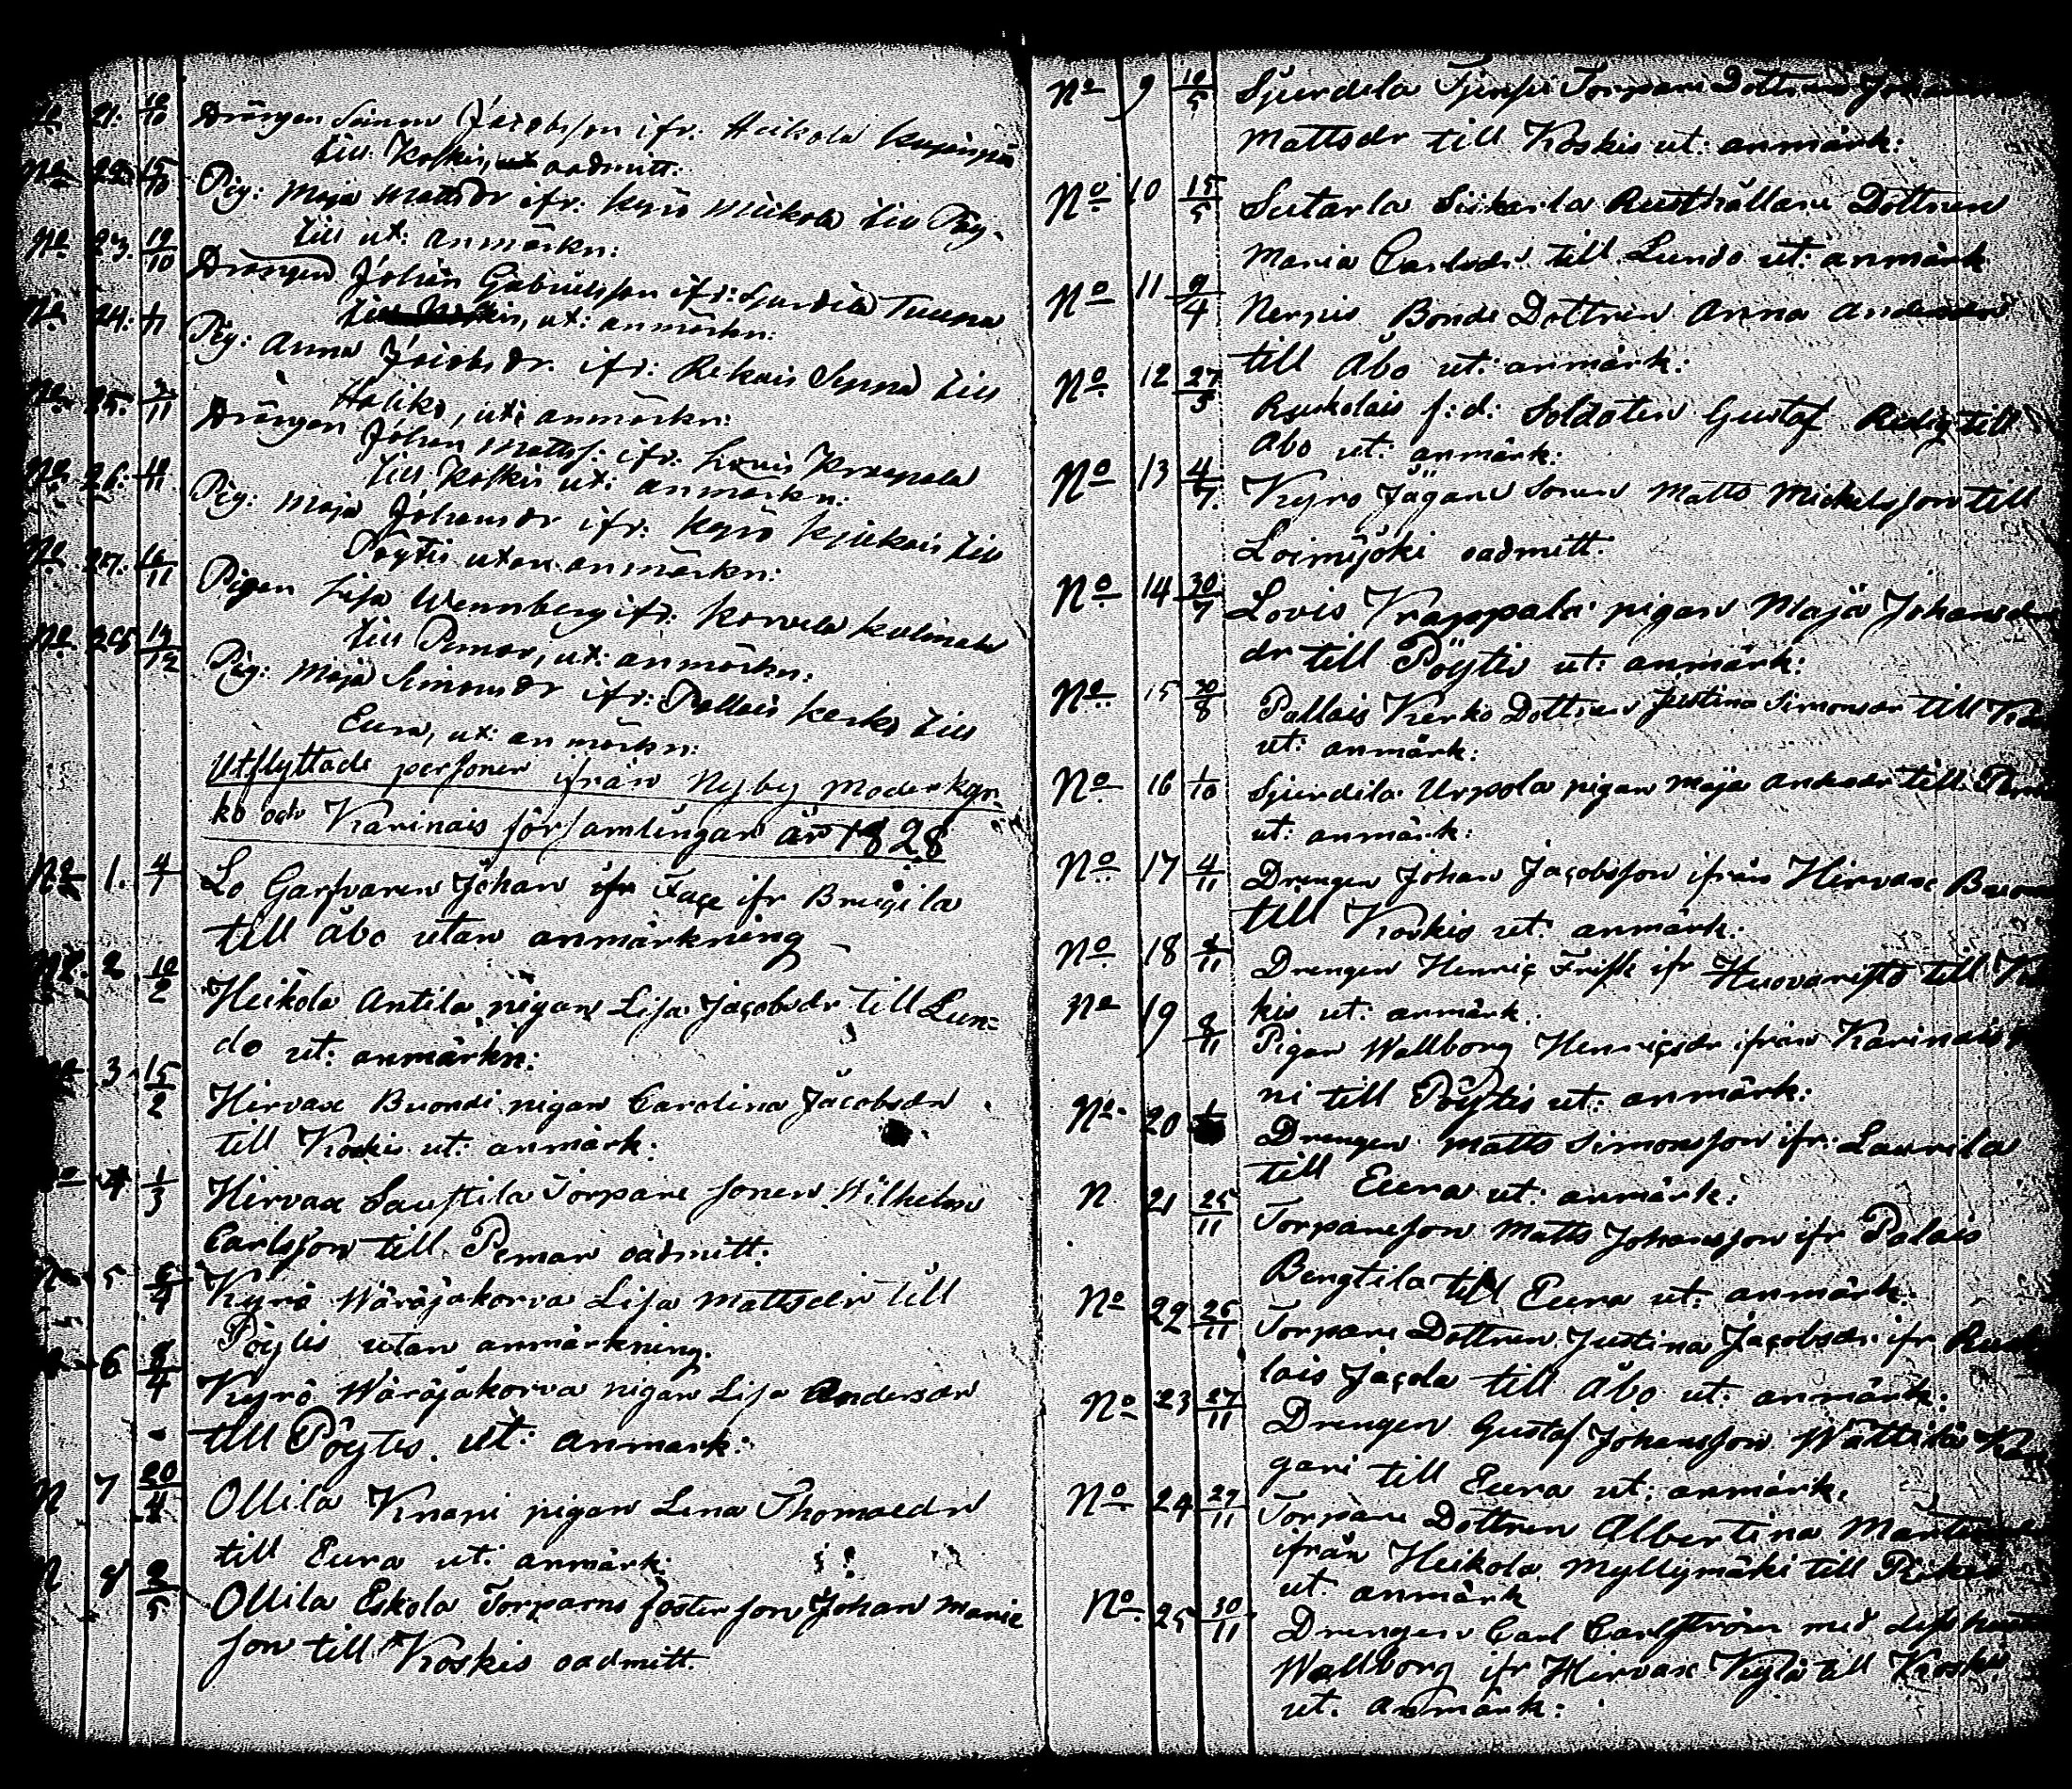 No 21. 10/10 Drängen Simon Jacobsson ifr. Heikola
till Koskis, oadmitt.
No 15/10 Pig: Maja Mattsdr ifr. Kyrö Miekola till Pöy-
tis ut: anmärkn:
No 23. 19/10 Drängen Johan Gabrielsson ifr: Sjurdila
ut: anmärkn:
No 24. Pig: Anna Jacobsdr. ifr: Rekais Seppä till
Haliko, ut: anmärkn:
No 25. Drängen Johan Matts: ifr. Lovis Krappala
till Koskis ut: anmärkn:
No 26. Pig: Maja Johansdr ifr. Kyrö till
Pöytis utan anmärkn:
No 27. Pigan Lisa Wennberg ifr.
till Pemar, ut: anmärkn:
No 28 Pig: Maja Simonsdr ifr: Pallais Kerko till
Eura, ut: anmärkn:
Utflyttade personer ifrån Nyby moderkyr-
ko och Karinais församlingar år 1828
No 1. Garfvaren Johan ifr
till Åbo utan anmärkning
No 2 10/2 Heikola Antila pigan Lisa Jacobsdr till Lun-
do ut: anmärkn:
3 15/2 Hirvax Buondi pigan Carolina Jacobsdr
till Koskis ut: anmärk:
4 1/3 Hirvax torpare sonen Wilhelm
Carlsson till Pemar oadmitt.
5 Kyrö Wäräjäkorva Lisa Mattsdr till
Pöytis utan anmärkning.
6 8/4 Kyrö Wäräjäkorva pigan Lisa Andersdr
till Pöytis. ut: anmärk:
N 7 20/4 Ollila Knapi pigan Lena Thomasdr
till Eura ut: anmärk:
N 8 2/5 Ollila Eskola Torparns foster son Johan
son till Koskis oadmitt.
No 9 10/5 Sjurdila Torpare Dottren
Mattsdr till Koskis ut: anmärk:
No 10 15/5 Sutarla Siikarla Rusthållare Dottren
Maria Carlsdr till Lundo ut: anmärk
No 11 9/4 Nerpis Bonde Dottren Anna Andersdr
till Åbo ut: anmärk:
No 12 27/5 Ruskolais f: d: Soldaten Gustaf till
Åbo ut: anmärk:
No 13 4/7. Kyro Jägare Sonen Matts Mickelsson till
Loimijöki oadmitt.
No 14 30/7 Lovis Krappala pigan Maja Johans
dr till Pöytis ut: anmärk:
No 15 30/8 Pallais Kerko Dottren Justina Simonsdr till
ut: anmärk:
No 16 1/10 Sjurdila Urpola pigan Maja Andersdr till
ut: anmärk:
No 17 4/11 Drengen Johan Jacobsson ifrån Hirvax
till Koskis ut: anmärk:
No 18 Drengen Henric Frisk ifr Huovaristo till
kis ut: anmärk.
No 19 8/11 Pigan Wallborg Henricsdr ifrån Karinais
ni till Pöytis ut: anmärk:
No 20 Drengen Matts Simonsson ifr: Laurila
till Eura ut: anmärk:
N 21 25/11 Torparesson Matts Johansson ifr Palais
Bengtila till Eura ut: anmärk:
No 22 26/11 Torpare Dottren Justina Jacobsdr ifr
lais Jacola till Åbo ut: anmärk:
No 23 27/11 Drengen Gustaf Johansson Wättilä
gari till Eura ut: anmärk:
No 24 27/11 Torpare Dottren Albertina
ifrån Heikola Myllymäki till
ut: anmärk
No 25 30/11 Drengen Carl Carlström med
Wallborg ifr Hirvax Kylä till Koskis
ut: anmärk: